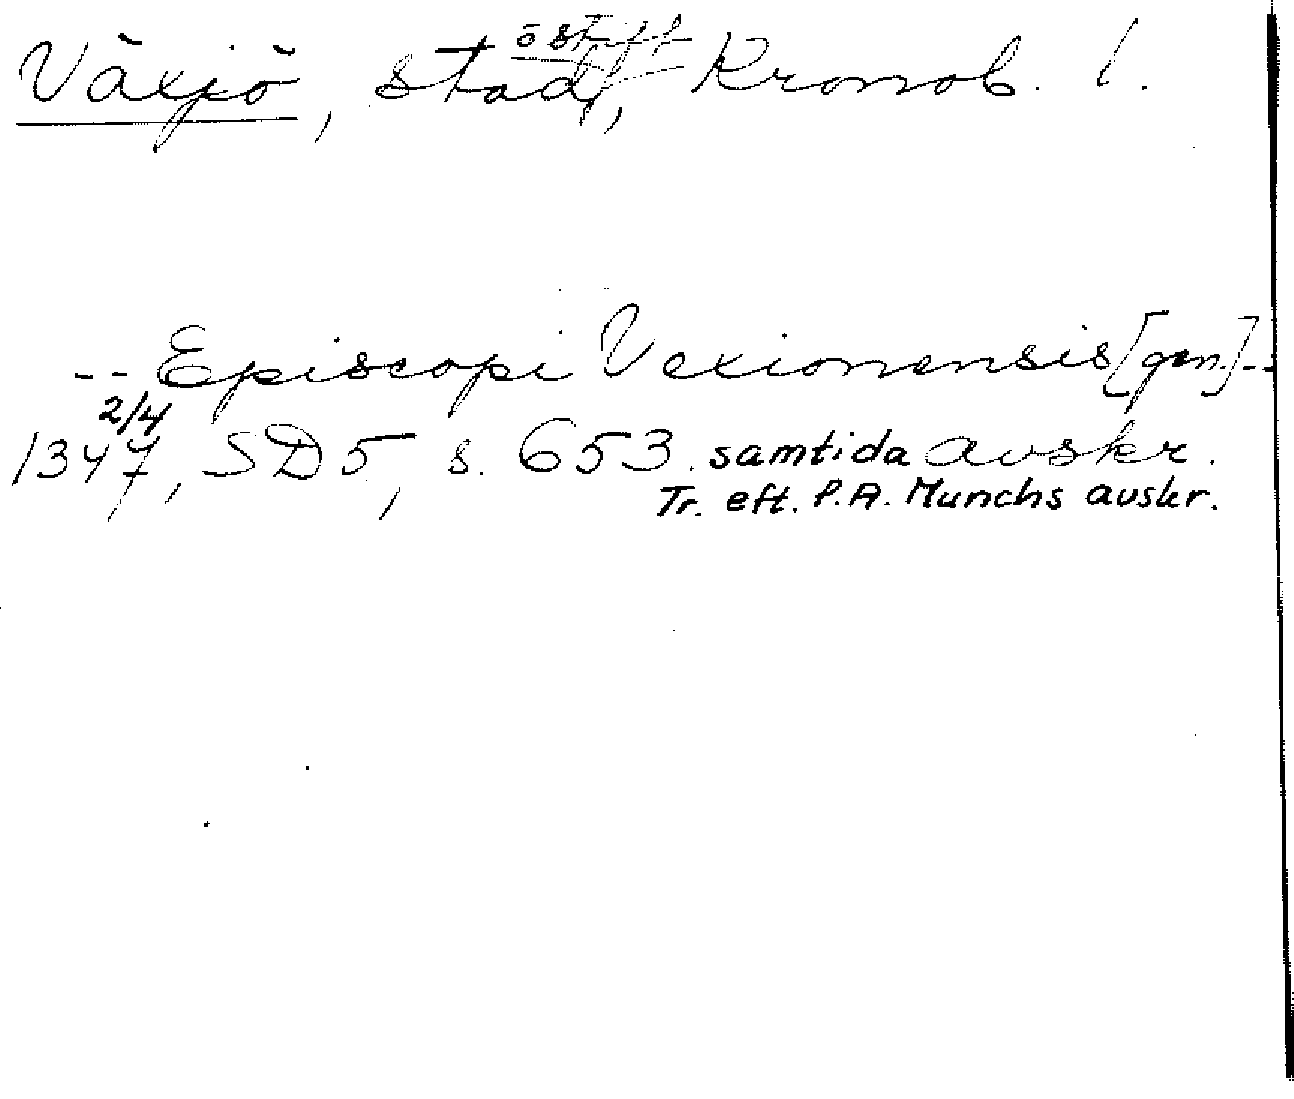 Växjö, stad, Kronob. l.
-- Episcopi Vexionensis [gen.] --
2/4
1347, SD 5, s. 653. samtida avskr.
Tr. eft. P.A. Munchs avskr.